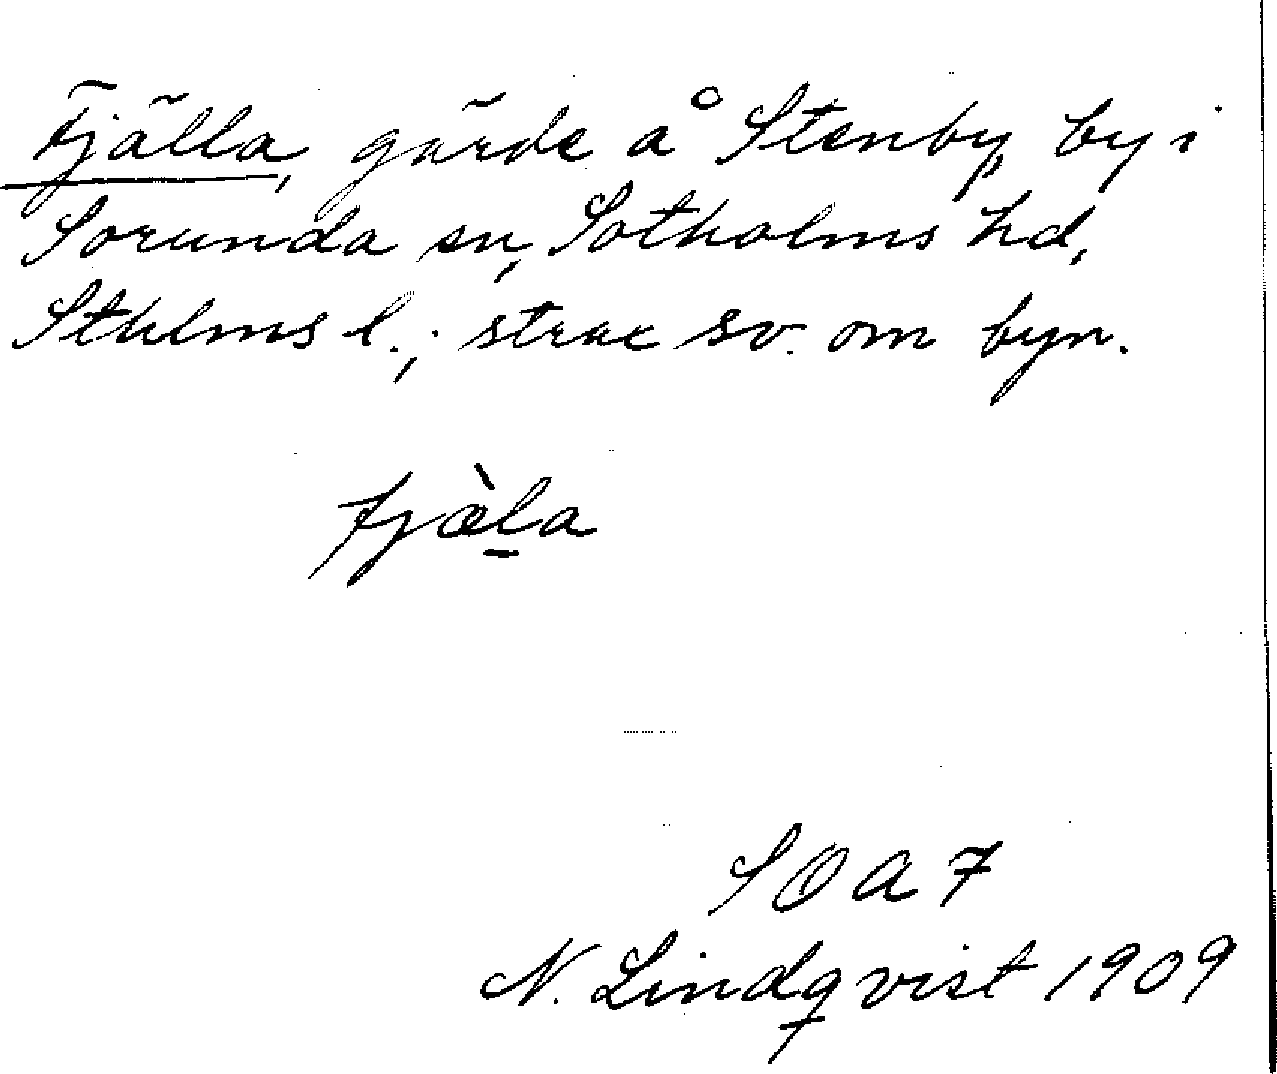 Fjälla, gärde å Stenby, by i
Sorunda sn, Sotholms hd,
Sthlms l.; strax sv. om byn.
fjæ̀l̲a
SOA 7
N. Lindqvist 1909